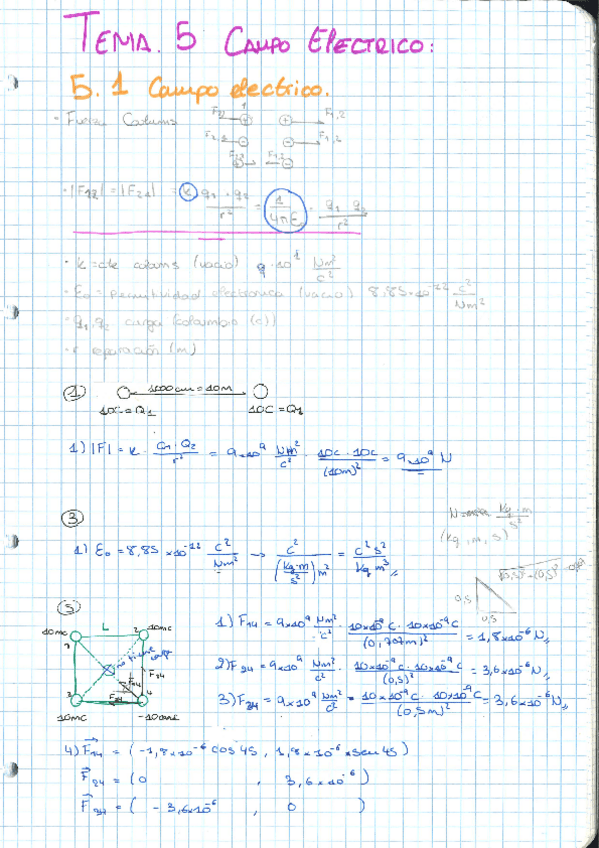 TEMA. 5 CAMPO ELECTRICO:
5.1 Campo electrico.
- Fuerza Coulomb
F21 F1,2
F2,1 F1,2
F21 F1,2
· |F12| = |F21| = k q1 · q2 / r² = 1/4πε0 · q1 · q2 / r²
· k = cte (vacio) 9·10 Nm²/c²
· E0 = permitividad electronica (vacio) 8,85·10⁻¹² c²/Nm²
· q1, q2 carga (c)
(m)
① 1000cm = 10m
10C = Q1 10C = Q2
1) |F| = k · Q1 · Q2 / r² = 9x10⁹ Nm²/c² · 10C · 10C / (10m)² = 9x10⁹ N
③
N = Kg · m / s²
(kg, m, s)
1) E0 = 8,85 x10⁻¹² C²/Nm² → C² / (Kg·m/s²) m² = C² s² / Kg m³
0,5
0,5
⑤ L
10mc 10mc
1 2
3 4
F14 F24
F34
10mc -10mc
1) F14 = 9x10⁹ Nm²/c² · 10x10⁻⁹C · 10x10⁻⁹C / (0,707m)² = 1,8x10⁻⁶ N
2) F24 = 9x10⁹ Nm²/c² · 10x10⁻⁹C · 10x10⁻⁹C / (0,5)² = 3,6x10⁻⁶ N
3) F34 = 9x10⁹ Nm²/c² = 10x10⁻⁹C · 10x10⁻⁹C / (0,5m)² = 3,6x10⁻⁶ N
4) F14 = (-1,8x10⁻⁶ cos 45 , 1,8x10⁻⁶ x sen 45)
F24 = (0 , 3,6x10⁻⁶)
F34 = (-3,6x10⁻⁶ , 0 )